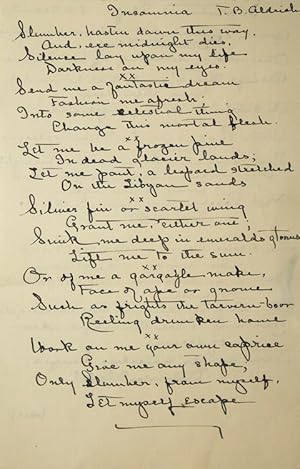 Insomnia T. B. Aldrich
Slumber, hasten down this way,
And, ere midnight dies,
Silence lay upon my life
Darkness on my eyes.
x x
Send me a fantastic dream
Fashion me afresh,
Into some celestial thing
Change this mortal flesh.
x x
Let me be a frozen pine
In dead glacier lands;
Let me pant, a leopard stretched
On the Libyan sands
x x
Silver fin or scarlet wing
Grant me, either one;
Sink me deep in emerald glooms
Lift me to the sun.
x x
Or of me a gargoyle make,
Face of ape or gnome
Such as frights the tavern-boor
Reeling drunken home
x x
Work on me your own caprice
Give me any shape,
Only Slumber, from myself,
Let myself escape